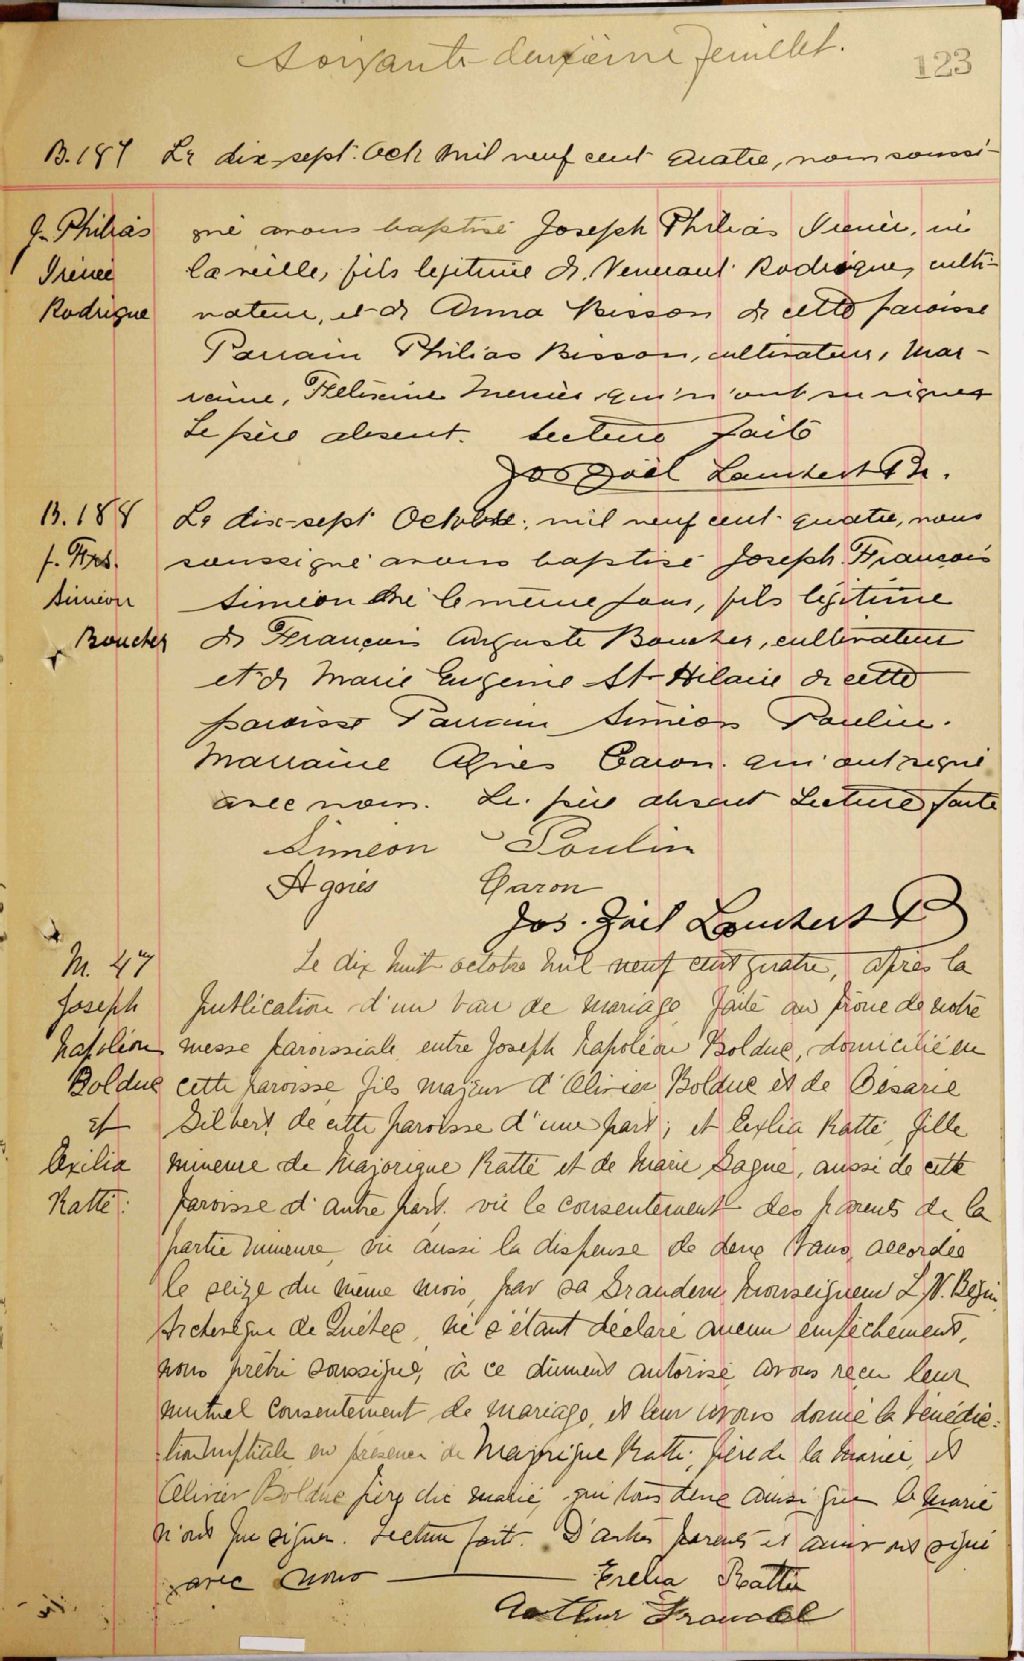 Soixante deuxième feuillet.
123
B.187 Le dix-sept Oct. mil neuf cent quatre, nous soussi-
J. Philias gné avons baptisé Joseph Philias Irenée, né
Irénée la veille, fils legitime de Venerant Rodrigue, culti-
Rodrigue vateur, et de Anna Bisson de cette paroisse
Parrain Philias Bisson, cultivateur, Mar-
raine, qui n'ont su signer
Le père absent. Lecture faite
Jos Joël Lambert Ptr.
B. 188 Le dix-sept Octobre, mil neuf cent quatre, nous
J. Frs. soussigné avons baptisé Joseph François
Siméon Siméon né le même jour, fils légitime
Boucher de François Auguste Boucher, cultivateur
et de Marie Eugenie St-Hilaire de cette
paroisse Parrain Siméon Poulin.
Marraine Agnès Caron. qui ont signé
avec nous. Le père absent Lecture faite
Siméon Poulin
Agnès Caron
Jos. Joël Lambert P
M. 47 Le dix huit octobre mil neuf cent quatre, après la
Joseph publication d'un ban de mariage faite au prône de notre
Napoléon messe paroissiale entre Joseph Napoléon Bolduc, domicilié en
Bolduc cette paroisse, fils majeur d'Olivier Bolduc et de Césarie
et Gilbert de cette paroisse d'une part; et Exilia Ratté, fille
Exilia mineure de Majorique Ratté et de Marie Gagné, aussi de cette
Ratté: paroisse d'autre part, vu le consentement des parents de la
partie mineure, vu aussi la dispense de deux bans, accordée
le seize du même mois, par sa Grandeur Monseigneur L. N. Bégin,
Archevêque de Québec, ne s'étant déclaré aucun empêchement,
nous prêtre soussigné, à ce dûment autorisé avons reçu leur
mutuel consentement de mariage, et leur avons donné la bénédic-
tion nuptiale en présence de Majorique Ratté, père de la mariée, et
Olivier Bolduc père du marié, qui tous deux ainsi que le marié
n'ont pu signer. Lecture faite. D'autres parents et amis ont signé
avec nous Exelia Ratté
Arthur